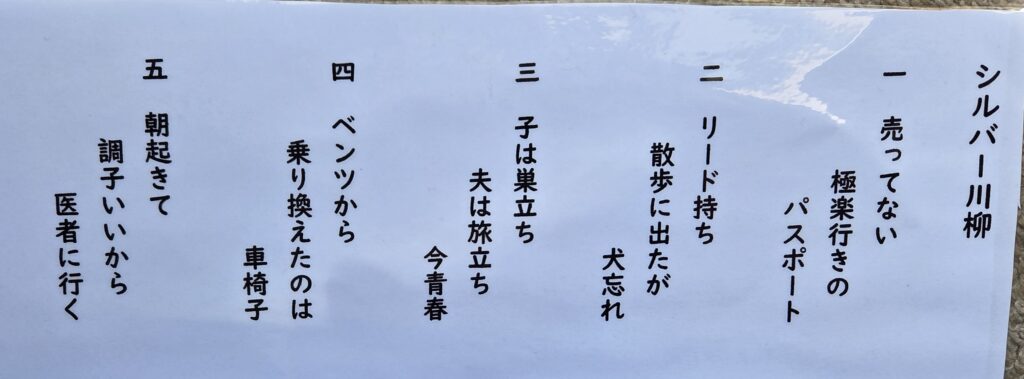 シルバー川柳
一 売ってない
極楽行きの
パスポート
二 リード持ち
散歩に出たが
犬忘れ
三 子は巣立ち
夫は旅立ち
今青春
四 ベンツから
乗り換えたのは
車椅子
五 朝起きて
調子いいから
医者に行く